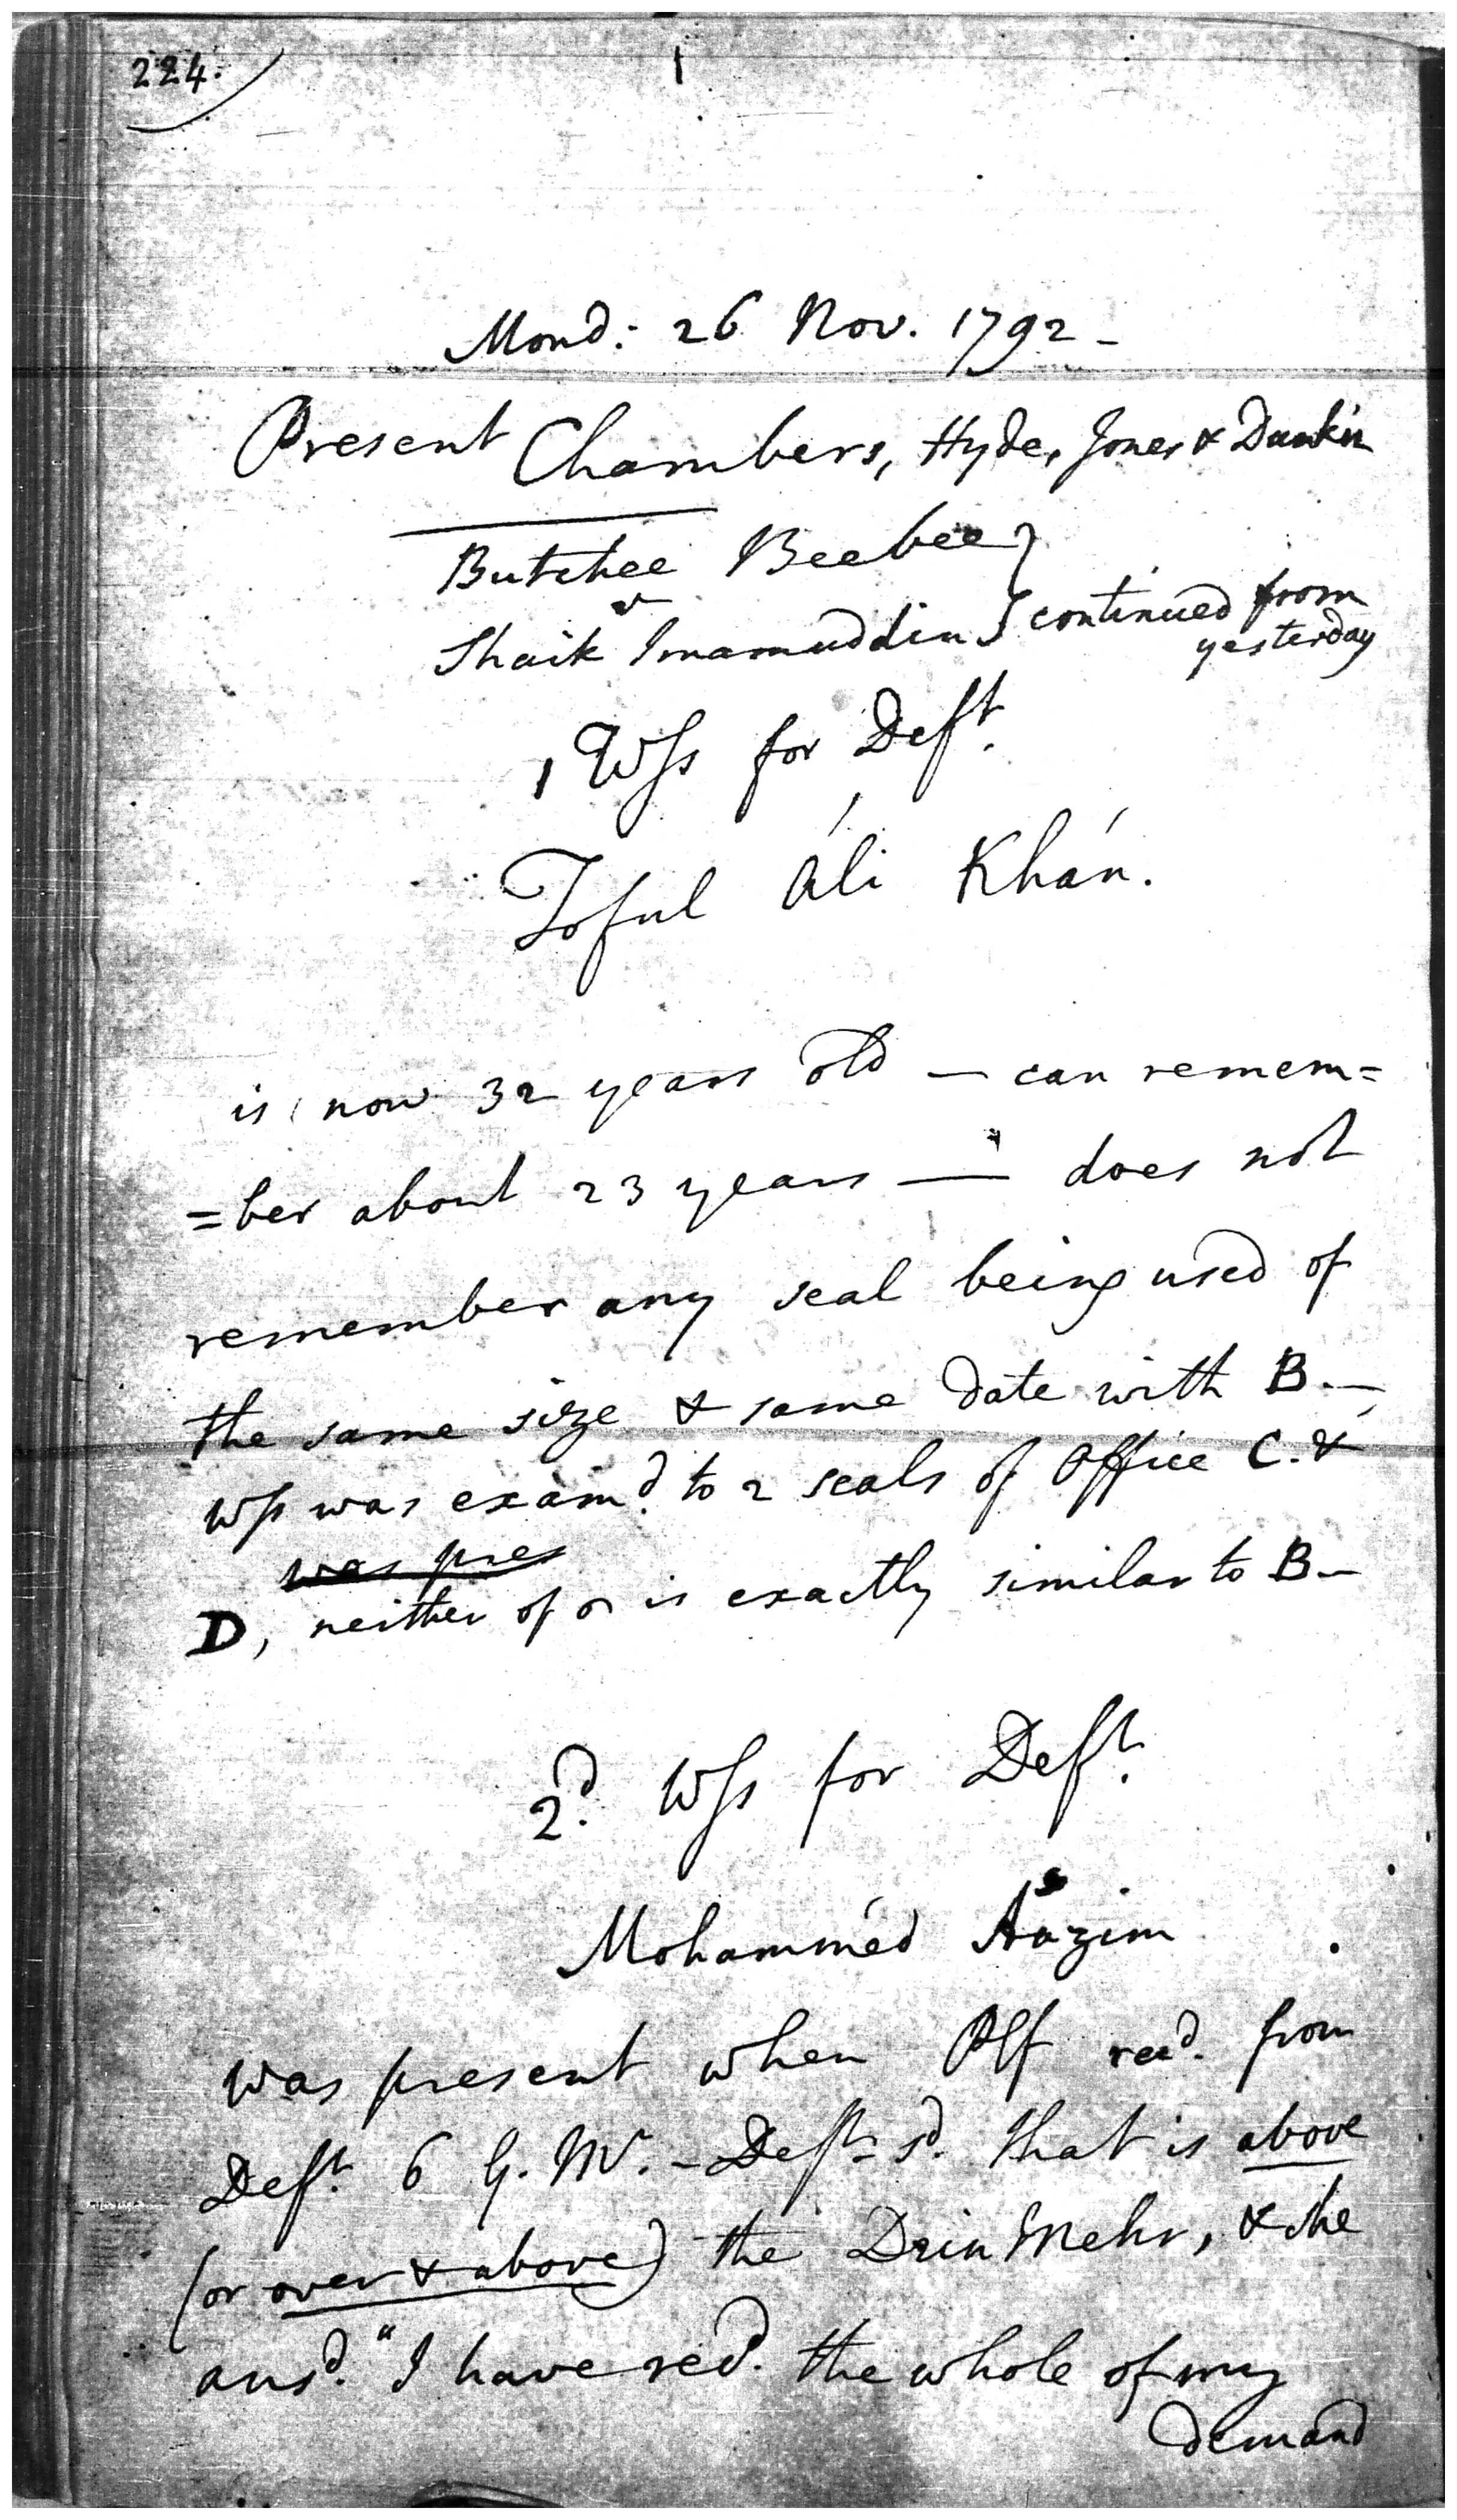 224.
Mond: 26 Nov. 1792 -
Present Chambers, Hyde, Jones & Dunkin
Butchee Beebee }
v
Shaik Imamuddin } continued from
yesterday
1 Wss for Deft.
Toful Ali Khán.
is now 32 years old — can remem=
=ber about 23 years — does not
remember any seal being used of
the same size & same date with B. —
Wss was examd. to 2 seals of Office C. &
was pres
D, neither of is exactly similar to B —
2d. Wss for Deft.
Mohammed Aazim
was present when Plf recd. from
Deft. 6 G. M. - Deft. sd. that is above
(or over & above) the Dein Mehr, & she
ansd. "I have recd. the whole of my
demand